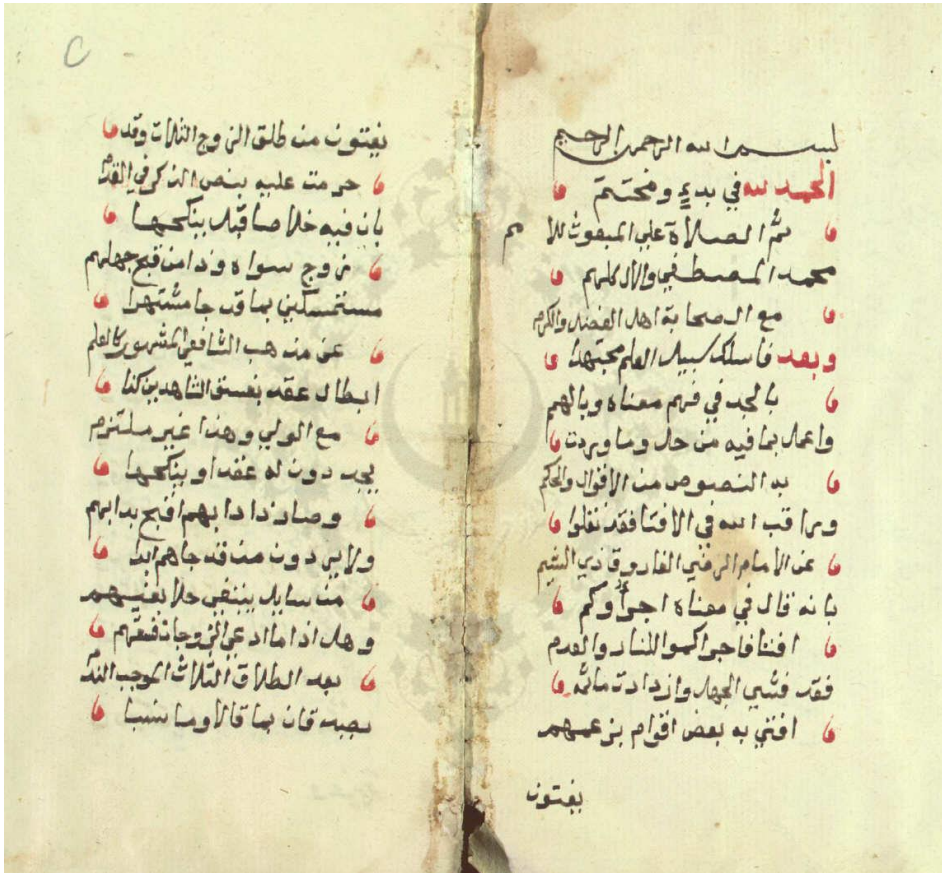 بسم الله الرحمن الرحيم
الحمد لله في بدءٍ ومختتم
ثم الصلاة علي المبعوث للامم
محمد المصطفي والال كلهم
مع الصحابة اهل الفضل والكرم
وبعد فاسلك سبيل العلم مجتهدا
بالجد في فهم معناه وبالهمم
واعمل بما فيه من حل وما وردت
به النصوص من الاقوال والحكم
وراقب الله في الافتا فقد نقلوا
عن الامام الرضي الفاروق ذي الشيم
بانه قال في معناه اجرأوكم
افتا فاجراكموا للنار والعدم
فقد فشي الجهل وازدادت مائمه
افتي به بعض اقوام بزعمهم
يفتون
يفتون من طلق الزوج الثلاث وقد
حرمت عليه بنص الذكر في القدم
بان فيه خلاصا قبل ينكحها
زوج سواه وذا من قبح جهلهم
مستمسكين بما قد جا مشتهرا
عن مذهب الشافعي المشهور كالعلم
ابطال عقد بفسق الشاهدين كذا
مع الولي وهذا غير ملتزم
يجددون له عقدا وينكحها
وصار ذا دابهم اقبح بدابهم
ولا يردون من قد جاهم ابدا
من سايل يبتغي حلا بغيهم
وهل اذا ما ادعي الزوجات فسقهم
بعد الطلاق الثلاث الموجب الندم
بما قالا وما